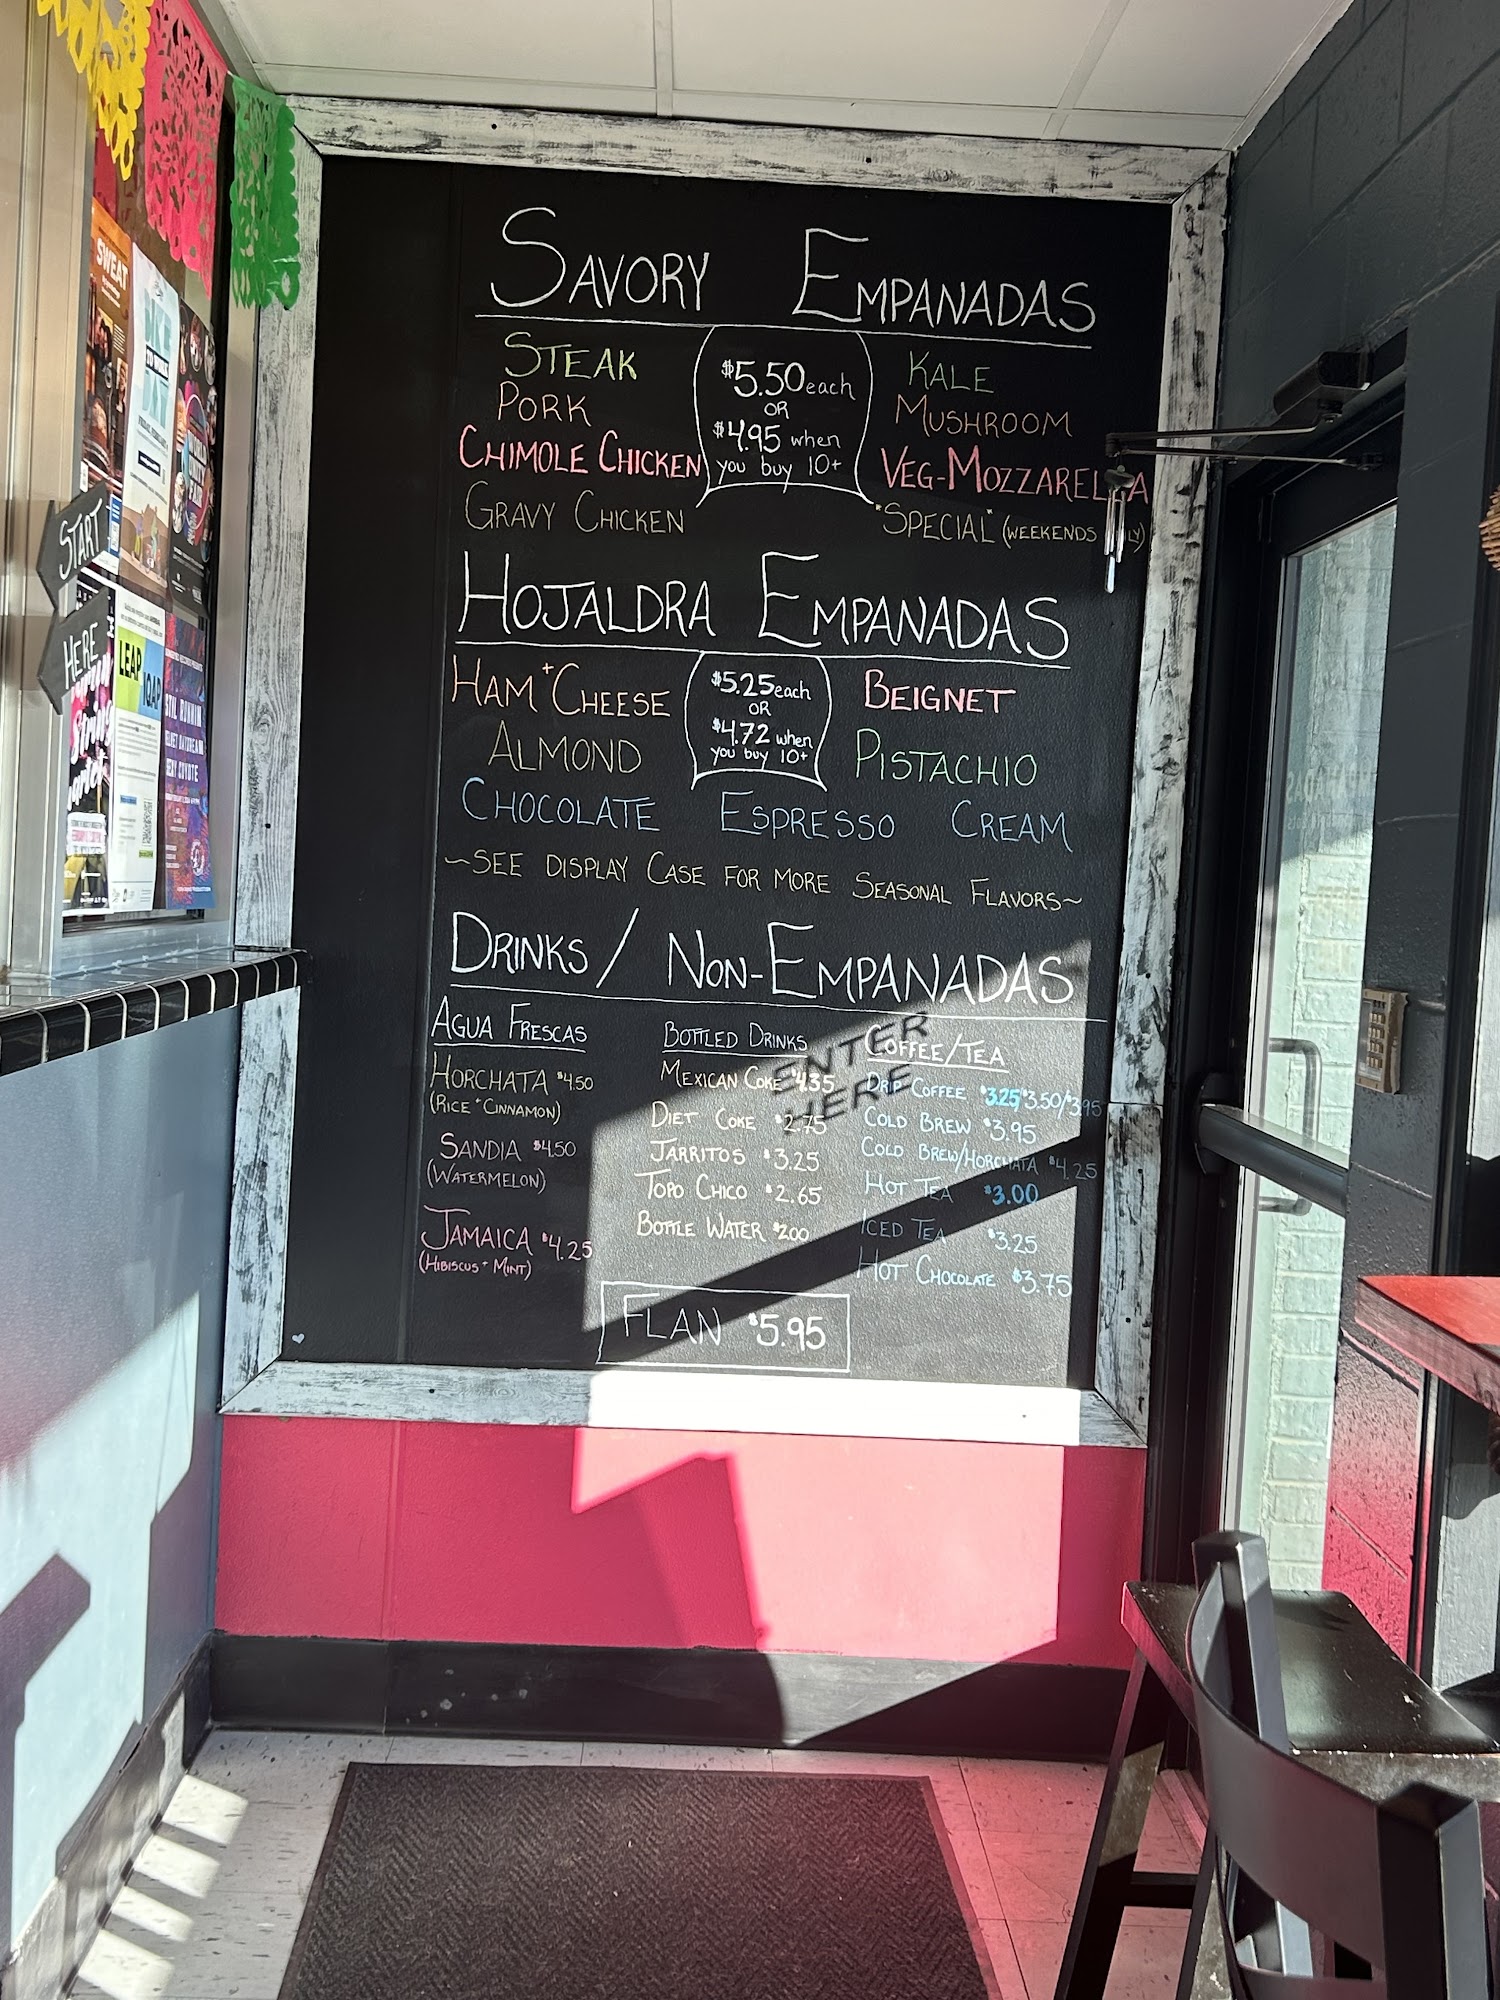 SAVORY EMPANADAS
STEAK
PORK
CHIMOLE CHICKEN
GRAVY CHICKEN
$5.50 each
OR
$4.95 when
you buy 10+
KALE
MUSHROOM
VEG-MOZZARELLA
"SPECIAL" (WEEKENDS ONLY)
HOJALDRA EMPANADAS
HAM + CHEESE
ALMOND
$5.25 each
OR
$4.72 when
you buy 10+
BEIGNET
PISTACHIO
CHOCOLATE ESPRESSO CREAM
~SEE DISPLAY CASE FOR MORE SEASONAL FLAVORS~
DRINKS / NON-EMPANADAS
AGUA FRESCAS
HORCHATA $4.50
(RICE + CINNAMON)
SANDIA $4.50
(WATERMELON)
JAMAICA $4.25
(HIBISCUS + MINT)
BOTTLED DRINKS
MEXICAN COKE $4.35
DIET COKE $2.75
JARRITOS $3.25
TOPO CHICO $2.65
BOTTLE WATER $2.00
COFFEE/TEA
DRIP COFFEE $3.25/$3.50/$3.95
COLD BREW $3.95
COLD BREW/HORCHATA $4.25
HOT TEA $3.00
ICED TEA $3.25
HOT CHOCOLATE $3.75
FLAN $5.95
ENTER
HERE
START
HERE
SWEAT
LEAP